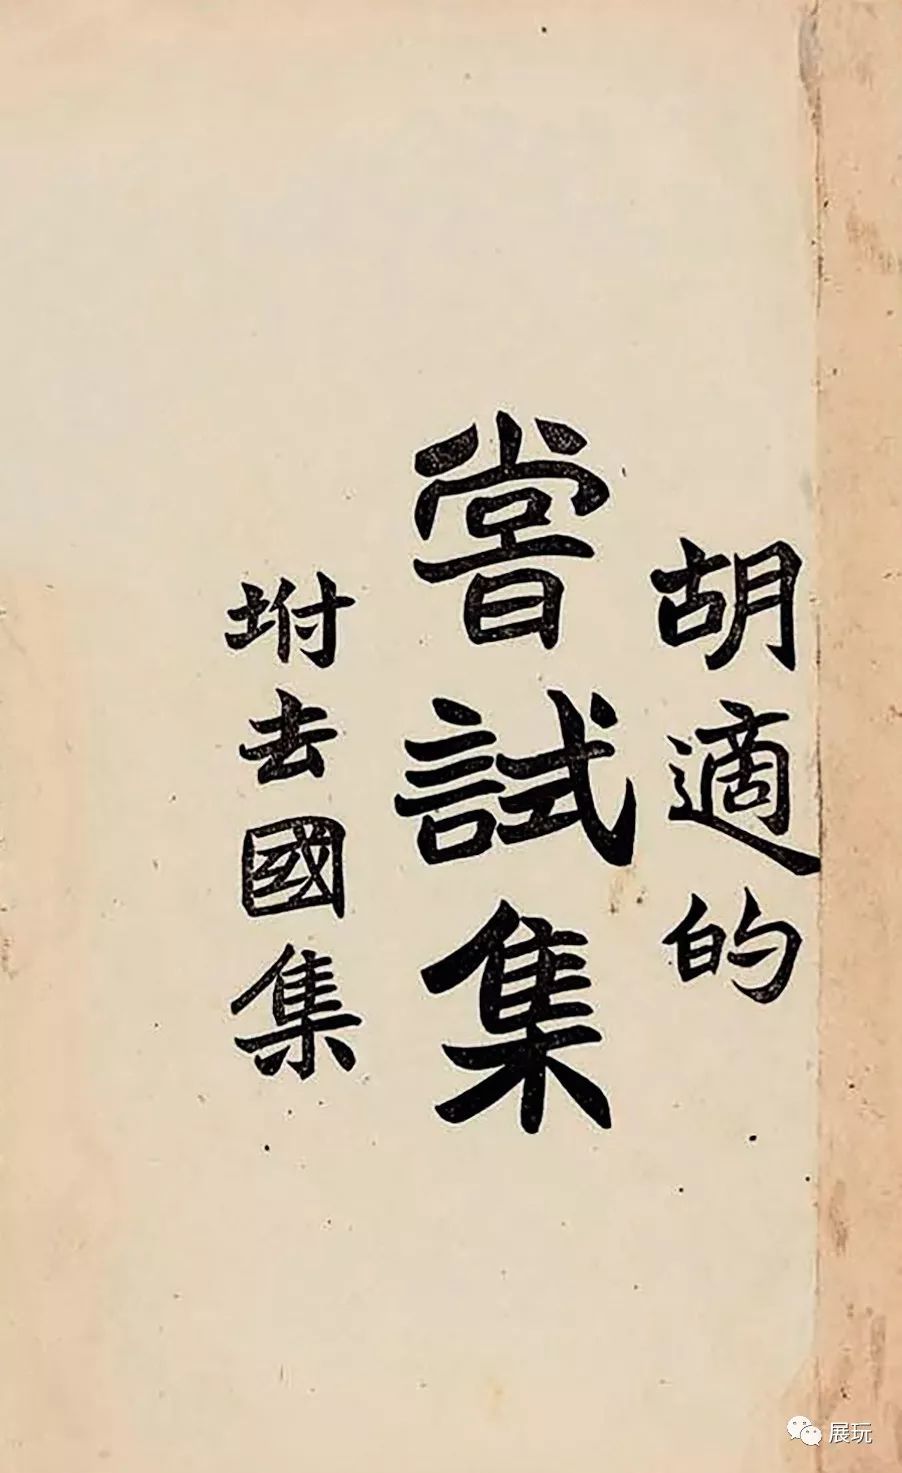 胡適的
嘗試集
坿去國集
展玩